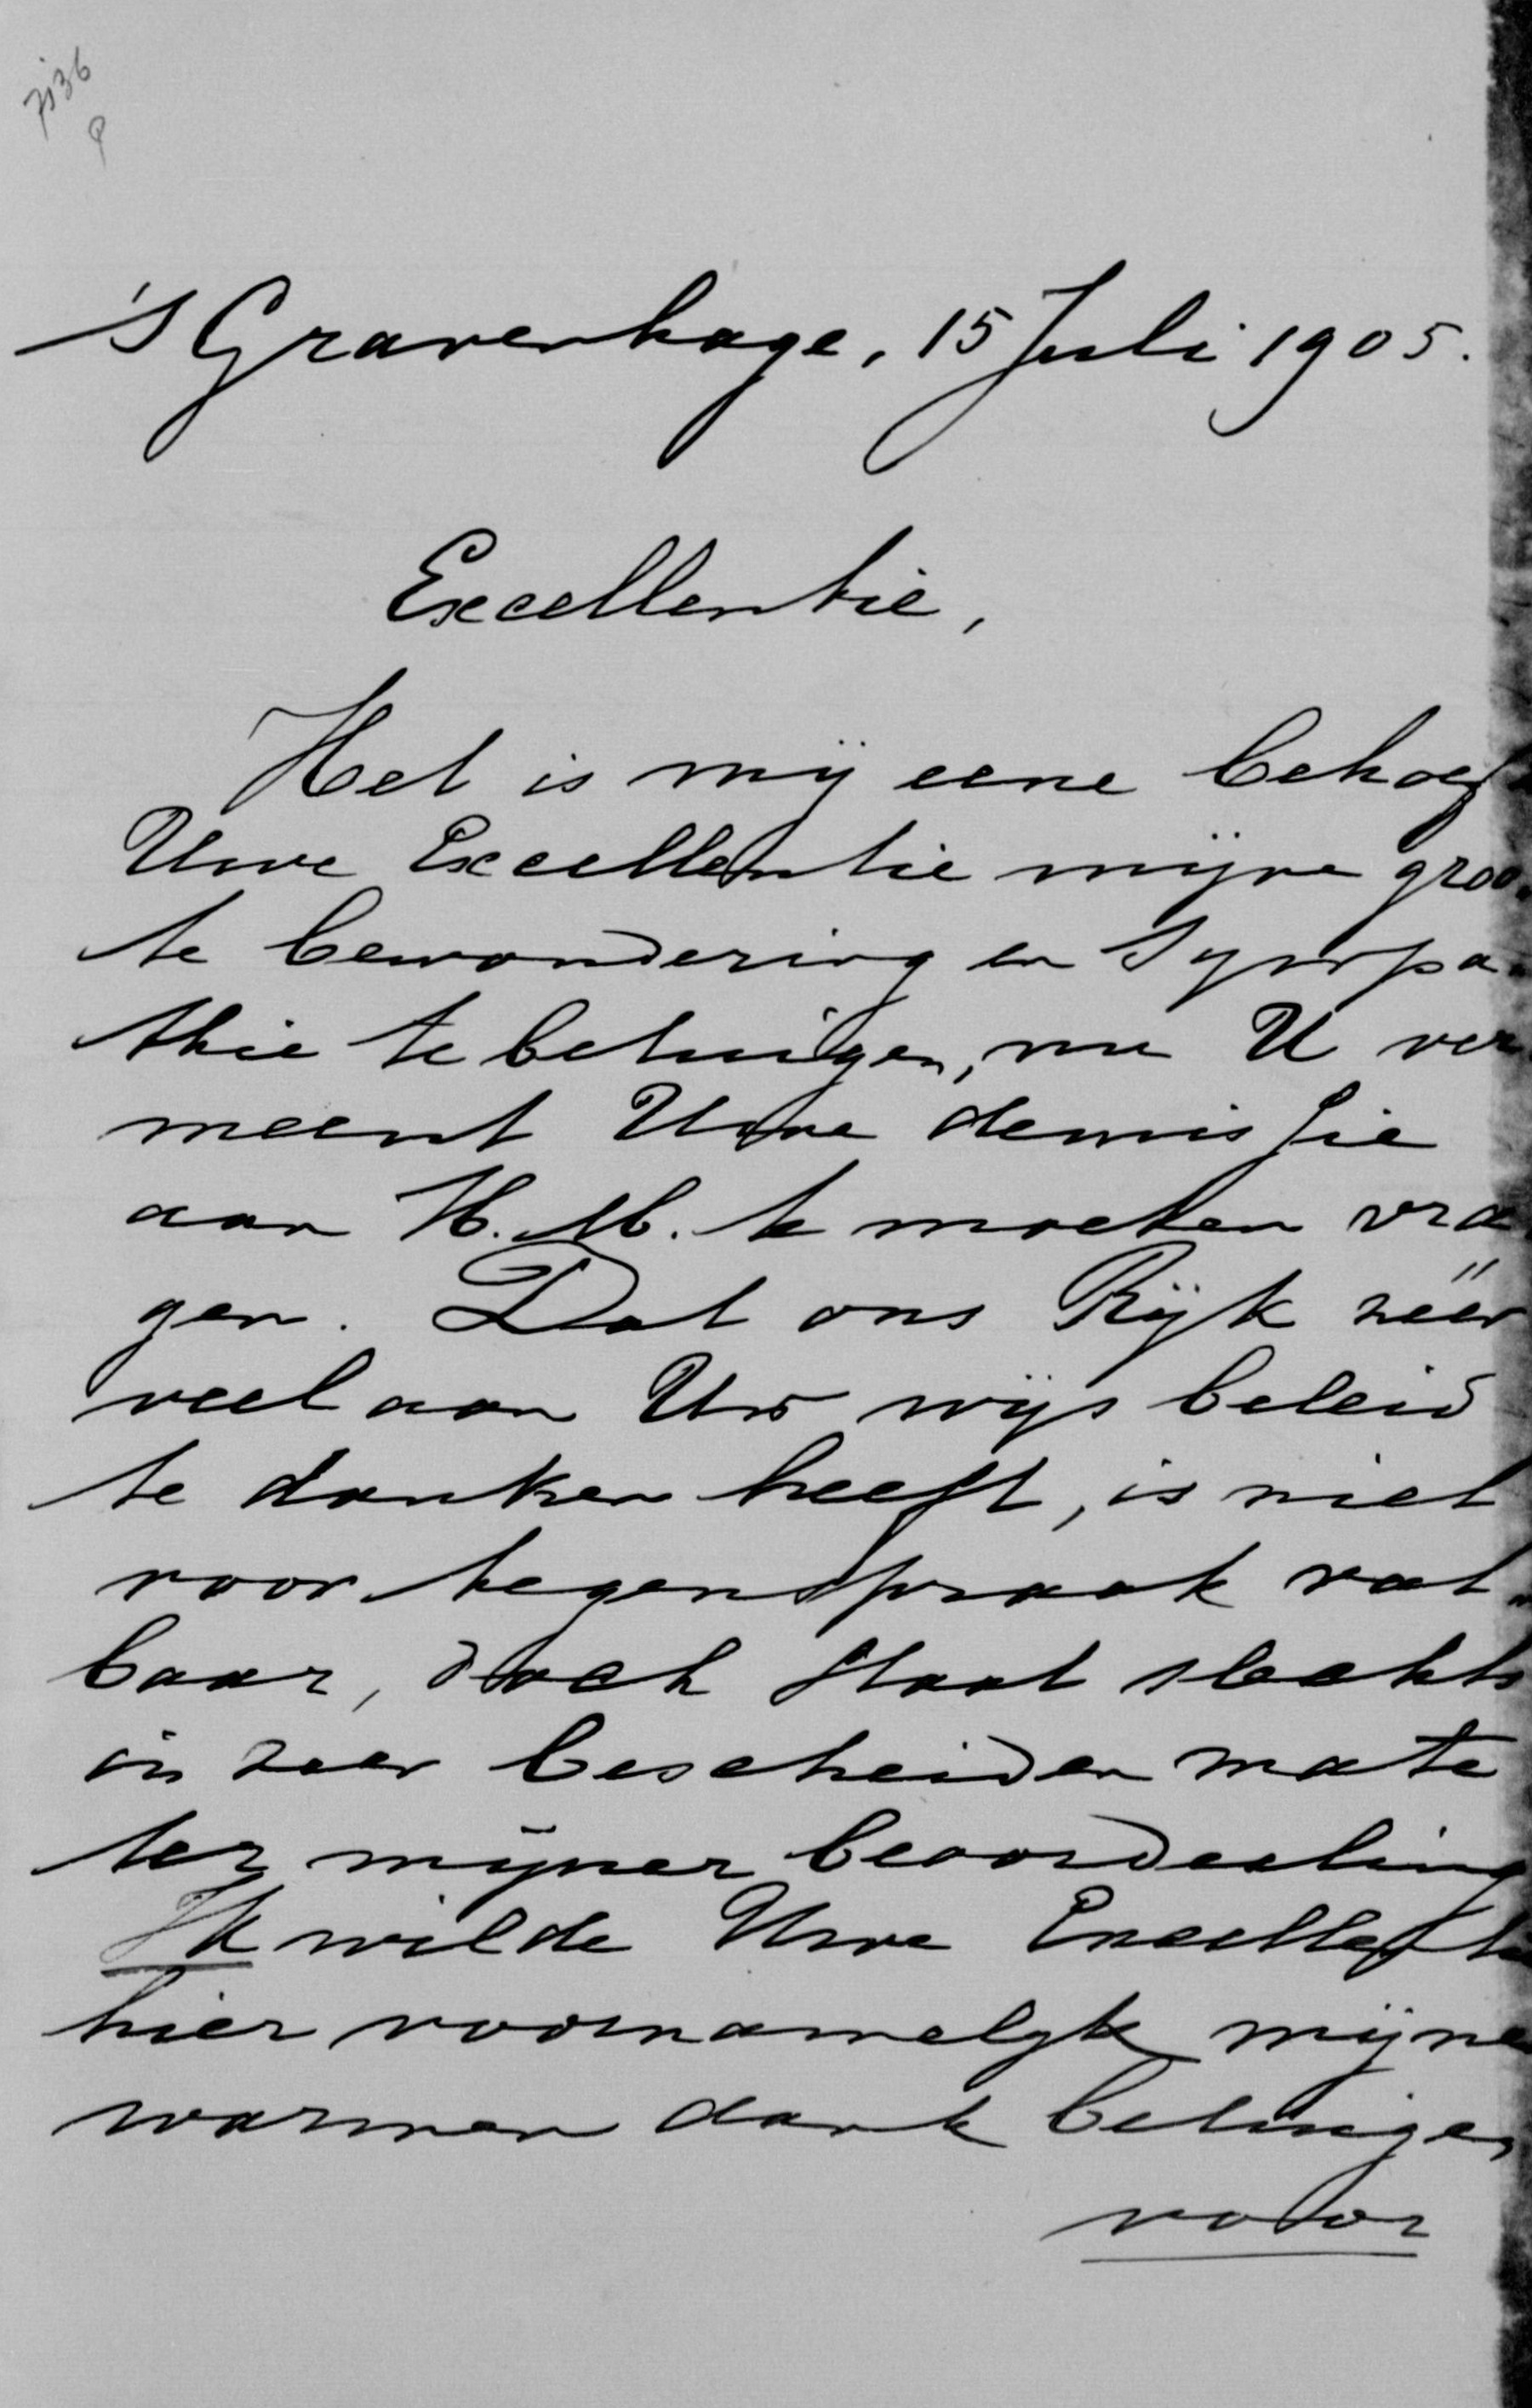 7136
's Gravenhage, 15 Juli 1905.
Excellentie,
Het is mij eene behoef
Uwe Excellentie mijne groo-
te bewondering en sympa-
thie te betuigen, nu U ver
meent Uwe demissie
aan H.M. te moeten vra
gen. Dat ons Rijk zéér
veel aan Uw wijs beleid
te danken heeft, is niet
voor tegenspraak vat-
baar, doch staat slechts
in zeer bescheiden mate
ter mijner beoordeeling
Ik wilde Uwe Excellentie
hier voornamelijk mijnen
warmen dank betuigen
voor